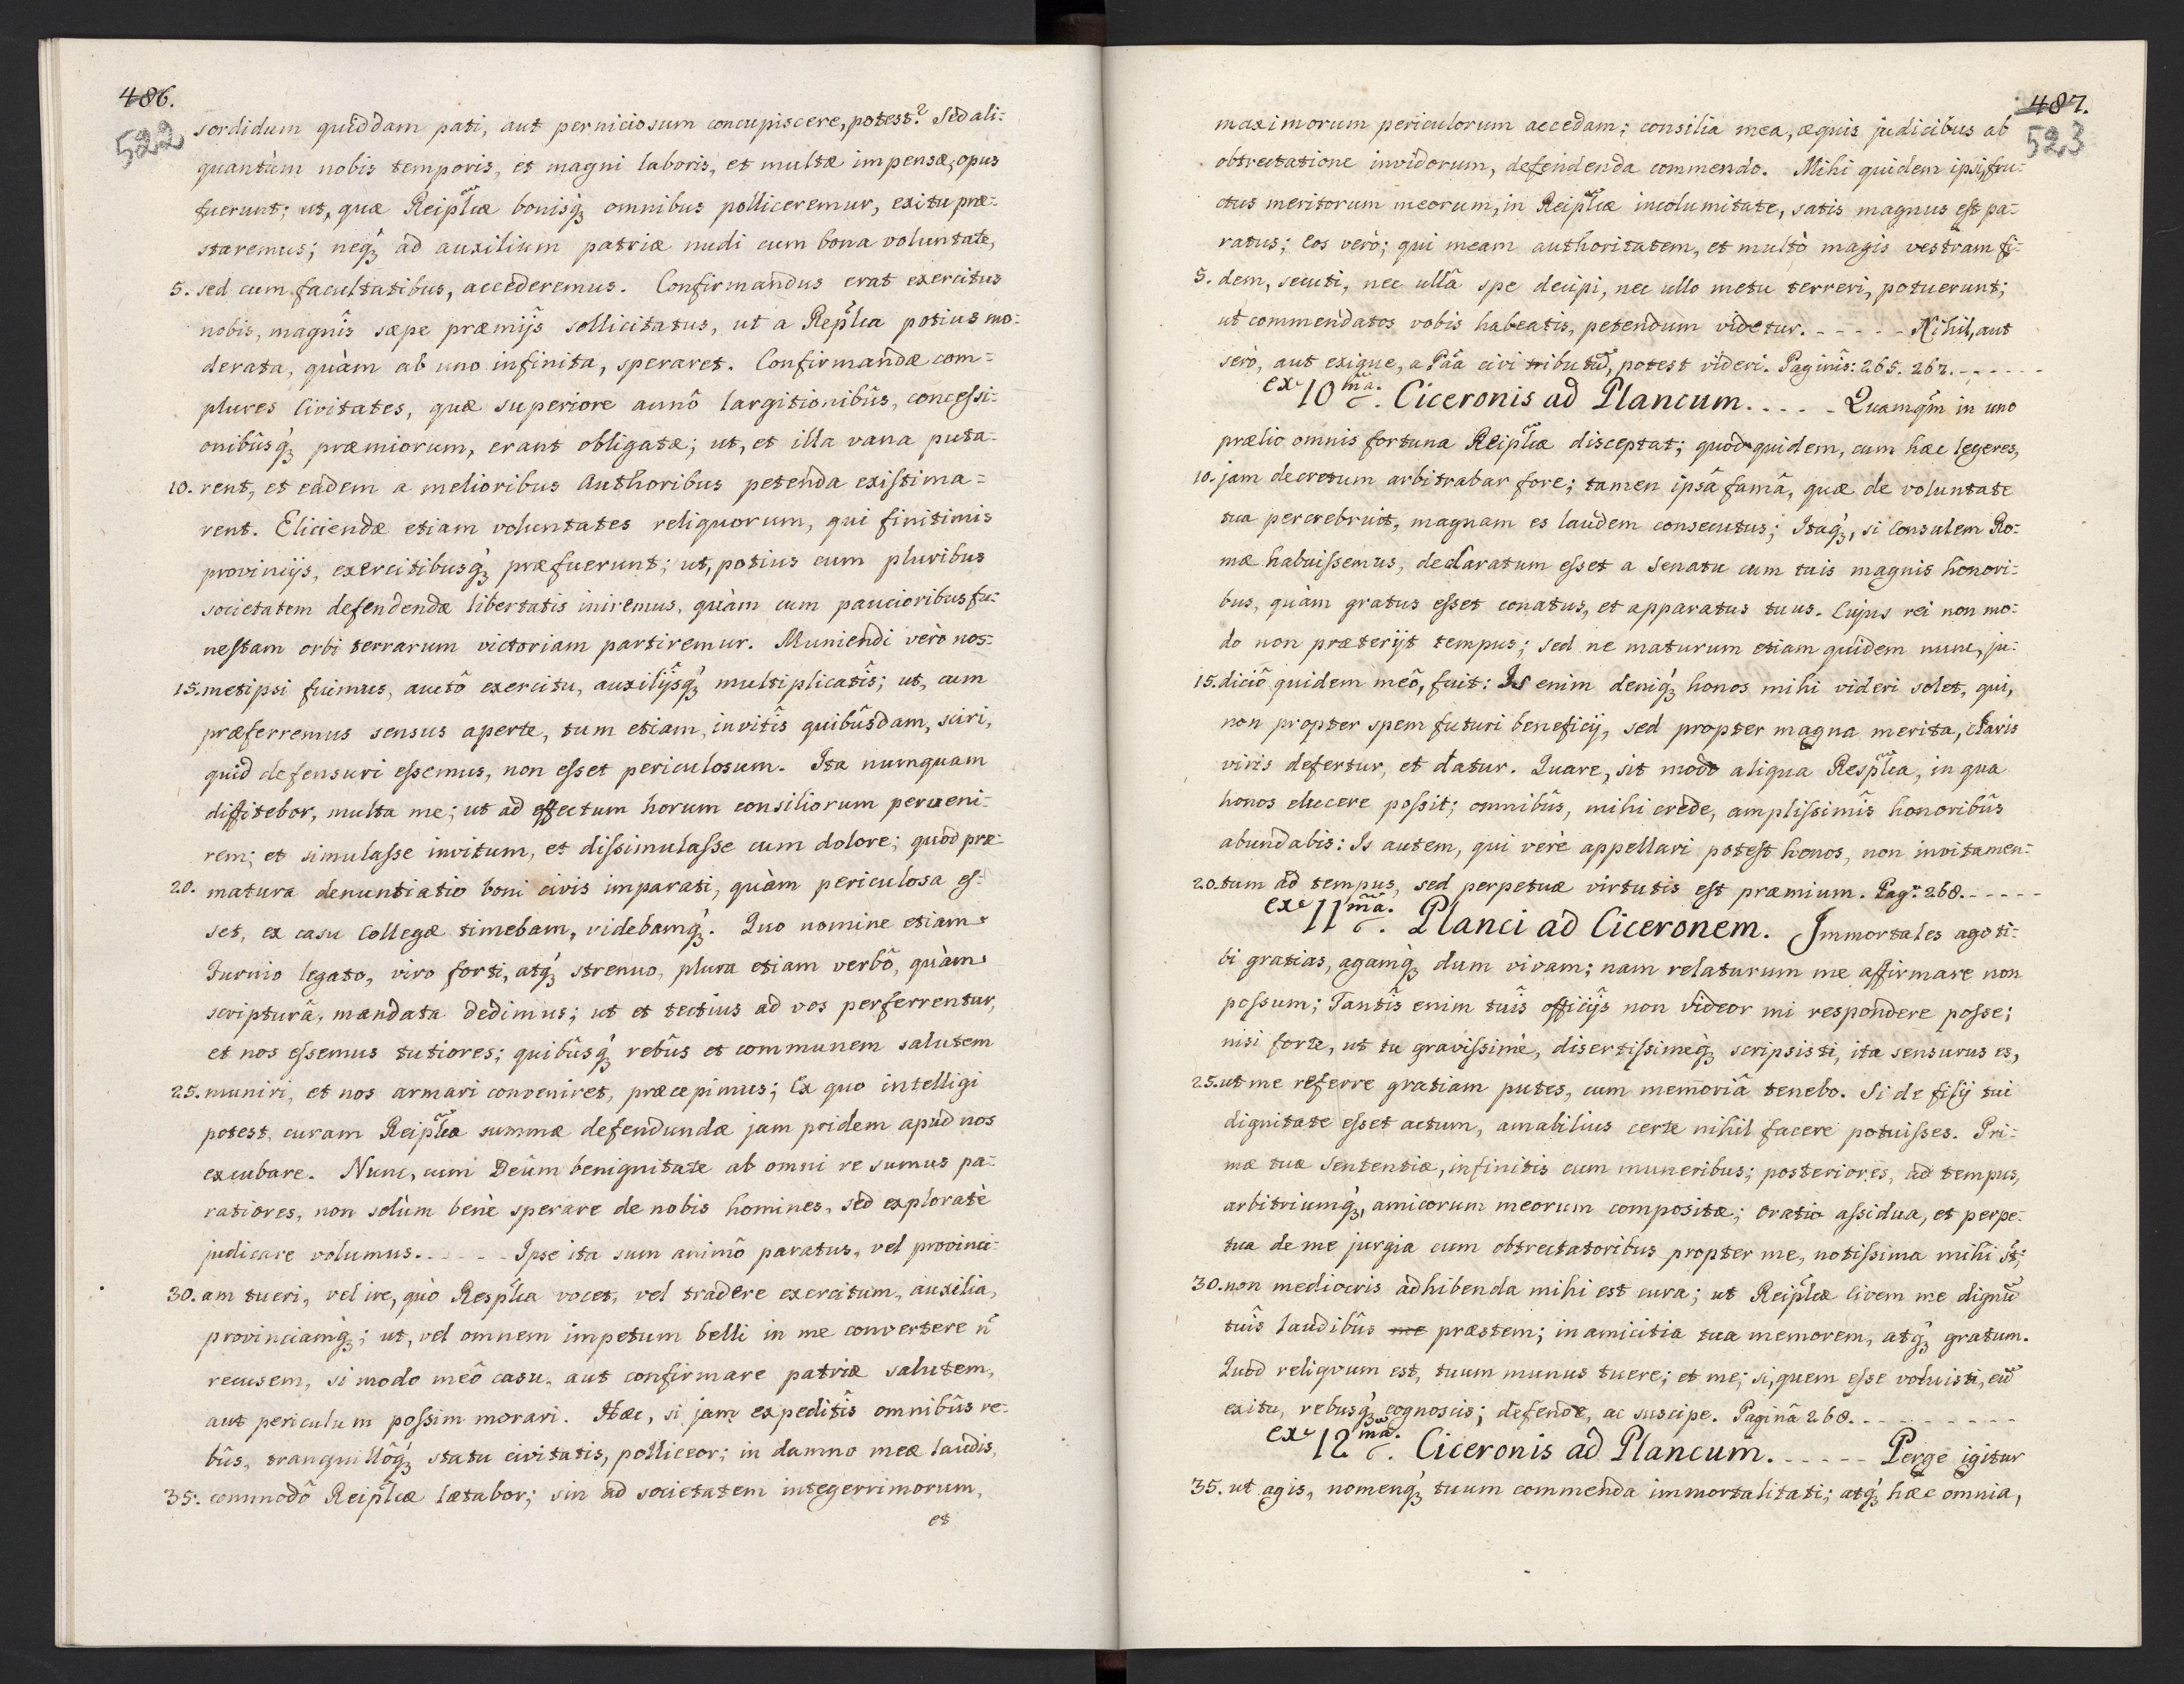 486.
522
sordidum quiddam pati, aut perniciosum concupiscere, potest? Sed ali=
quantùm nobis temporis, et magni laboris, et multæ impensæ, opus
fuerunt; ut, quæ Reipl̃cæ bonisq́ꝫ omnibus polliceremur, exitu præ=
staremus; neq́ꝫ ad auxilium patriæ nudi cum bona voluntate,
5. sed cum facultatibus, accederemus. Confirmandus erat exercitus
nobis, magnîs sæpe præmijs sollicitatus, ut a Repl̃ca potius mo=
derata, quàm ab uno infinita, speraret. Confirmandæ com=
plures Civitates, quæ superiore annô largitionibûs, concessi=
onibûsq́ꝫ præmiorum, erant obligatæ; ut, et illa vana puta=
10. rent, et eadem a melioribus Authoribus petenda existima=
rent. Eliciendæ etiam voluntates reliquorum, qui finitimis
provincijs, exercitibusq́ꝫ præfuerunt; ut, potius cum pluribus
societatem defendendæ libertatis iniremus, quàm cum paucioribus fu=
nestam orbi terrarum victoriam partiremur. Muniendi verò nos=
15. metipsi fuimus, auctô exercitu, auxilijsq́ꝫ multiplicatîs; ut, cum
præferremus sensus aperte, tum etiam, invitîs quibûsdam, sciri,
quid defensuri essemus, non esset periculosum. Ita numquam
diffitebor, multa me; ut ad effectum horum consiliorum perveni=
rem; et simulasse invitum, et dissimulasse cum dolore; quod præ=
20. matura denuntiatio boni civis imparati, quàm periculosa es=
set, ex casu Collegæ timebam, videbamq́ꝫ. Quo nomine etiam
Furnio legato, viro forti, atq́ꝫ strenuo, plura etiam verbô, quàm
scripturâ, mandata dedimus; ut et tectius ad vos perferrentur,
et nos essemus tutiores; quibûsq́ꝫ rebûs et communem salutem
25. muniri, et nos armari conveniret, præcepimus; Ex quo intelligi
potest, curam Reipl̃cæ summæ defendundæ jam pridem apud nos
excubare. Nunc, cum Deûm benignitate ab omni re sumus pa=
ratiores, non solùm benè sperare de nobis homines, sed exploratè
judicare volumus. - - - - - Ipse ita sum animô paratus, vel provinci=
30. am tueri, vel ire, quò Respl̃ca vocet, vel tradere exercitum, auxilia,
provinciamq́ꝫ; ut, vel omnem impetum belli in me convertere ñ
recusem, si modo meô casu, aut confirmare patriæ salutem,
aut periculum possim morari. Hæc, si jam expeditîs omnibûs re=
bûs, tranquillôq́ꝫ statu civitatis, polliceor; in damno meæ laudis,
35. commodô Reipl̃cæ lætabor; sin ad societatem integerrimorum,
et
487.
523
maximorum periculorum accedam; consilia mea, æquis judicibus ab
obtrectatione invidorum, defendenda commendo. Mihi quidem ipsi, fru=
ctus meritorum meorum, in Reipl̃cæ incolumitate, satis magnus est pa=
ratus; Eos verò; qui meam authoritatem, et multò magis vestram fi=
5. dem, secuti, nec ullâ spe decipi, nec ullo metu terreri, potuerunt;
ut commendatos vobis habeatis, petendum videtur. - - - - - Nihil, aut
serò, aut exigue, a Pãa civi tributũ, potest videri. Paginîs: 265. 267. - - - - -
ex 10mâ. Ciceronis ad Plancum. - - - - - Quamq̃m in uno
prælio omnis fortuna Reipl̃cæ disceptat; quod quidem, cum hæc legeres,
10. jam decretum arbitrabar fore; tamen ipsâ famâ, quæ de voluntate
tua percrebruit, magnam es laudem consecutus; Itaq́ꝫ, si Consulem Ro=
mæ habuissemus, declaratum esset a Senatu cum tuis magnis honori=
bus, quàm gratus esset conatus, et apparatus tuus. Cujus rei non mo=
do non præterijt tempus; sed ne maturum etiam quidem nunc, ju=
15. diciô quidem meô, fuit: Is enim deniq́ꝫ honos mihi videri solet, qui,
non propter spem futuri beneficij, sed propter magna merita, claris
viris defertur, et datur. Quare, sit modo aliqua Respl̃ca, in qua
honos elucere possit; omnibûs, mihi crede, amplissimîs honoribûs
abundabis: Is autem, qui verè appellari potest honos, non invitamen=
20. tum ad tempus, sed perpetuæ virtutis est præmium. Pag. 268. - - - - -
ex 11mâ. Planci ad Ciceronem. Immortales ago ti=
bi gratias, agamq́ꝫ dum vivam; nam relaturum me affirmare non
possum; Tantîs enim tuîs officijs non videor mi respondere posse;
nisi forte, ut tu gravissimè, disertissimeq́ꝫ scripsisti, ita sensurus es,
25. ut me referre gratiam putes, cum memoriâ tenebo. Si de filij tui
dignitate esset actum, amabilius certe nihil facere potuisses. Pri=
mæ tuæ Sententiæ, infinitis cum muneribus; posteriores, ad tempus,
arbitriumq́ꝫ, amicorum meorum compositæ; oratio assidua, et perpe=
tua de me jurgia cum obtrectatoribus propter me, notissima mihi s̃t;
30. non mediocris adhibenda mihi est cura; ut Reipl̃cæ Civem me dignũ
tuîs laudibûs me præstem; in amicitia tua memorem, atq́ꝫ gratum.
Quod reliquum est, tuum munus tuere; et me; si, quem esse voluisti, eũ
exitu, rebusq́ꝫ cognoscis; defende, ac suscipe. Paginâ 268. - - - - - - - - -
ex 12mâ. Ciceronis ad Plancum. - - - - - Perge igitur
35. ut agis, nomenq́ꝫ tuum commenda immortalitati; atq́ꝫ hæc omnia,